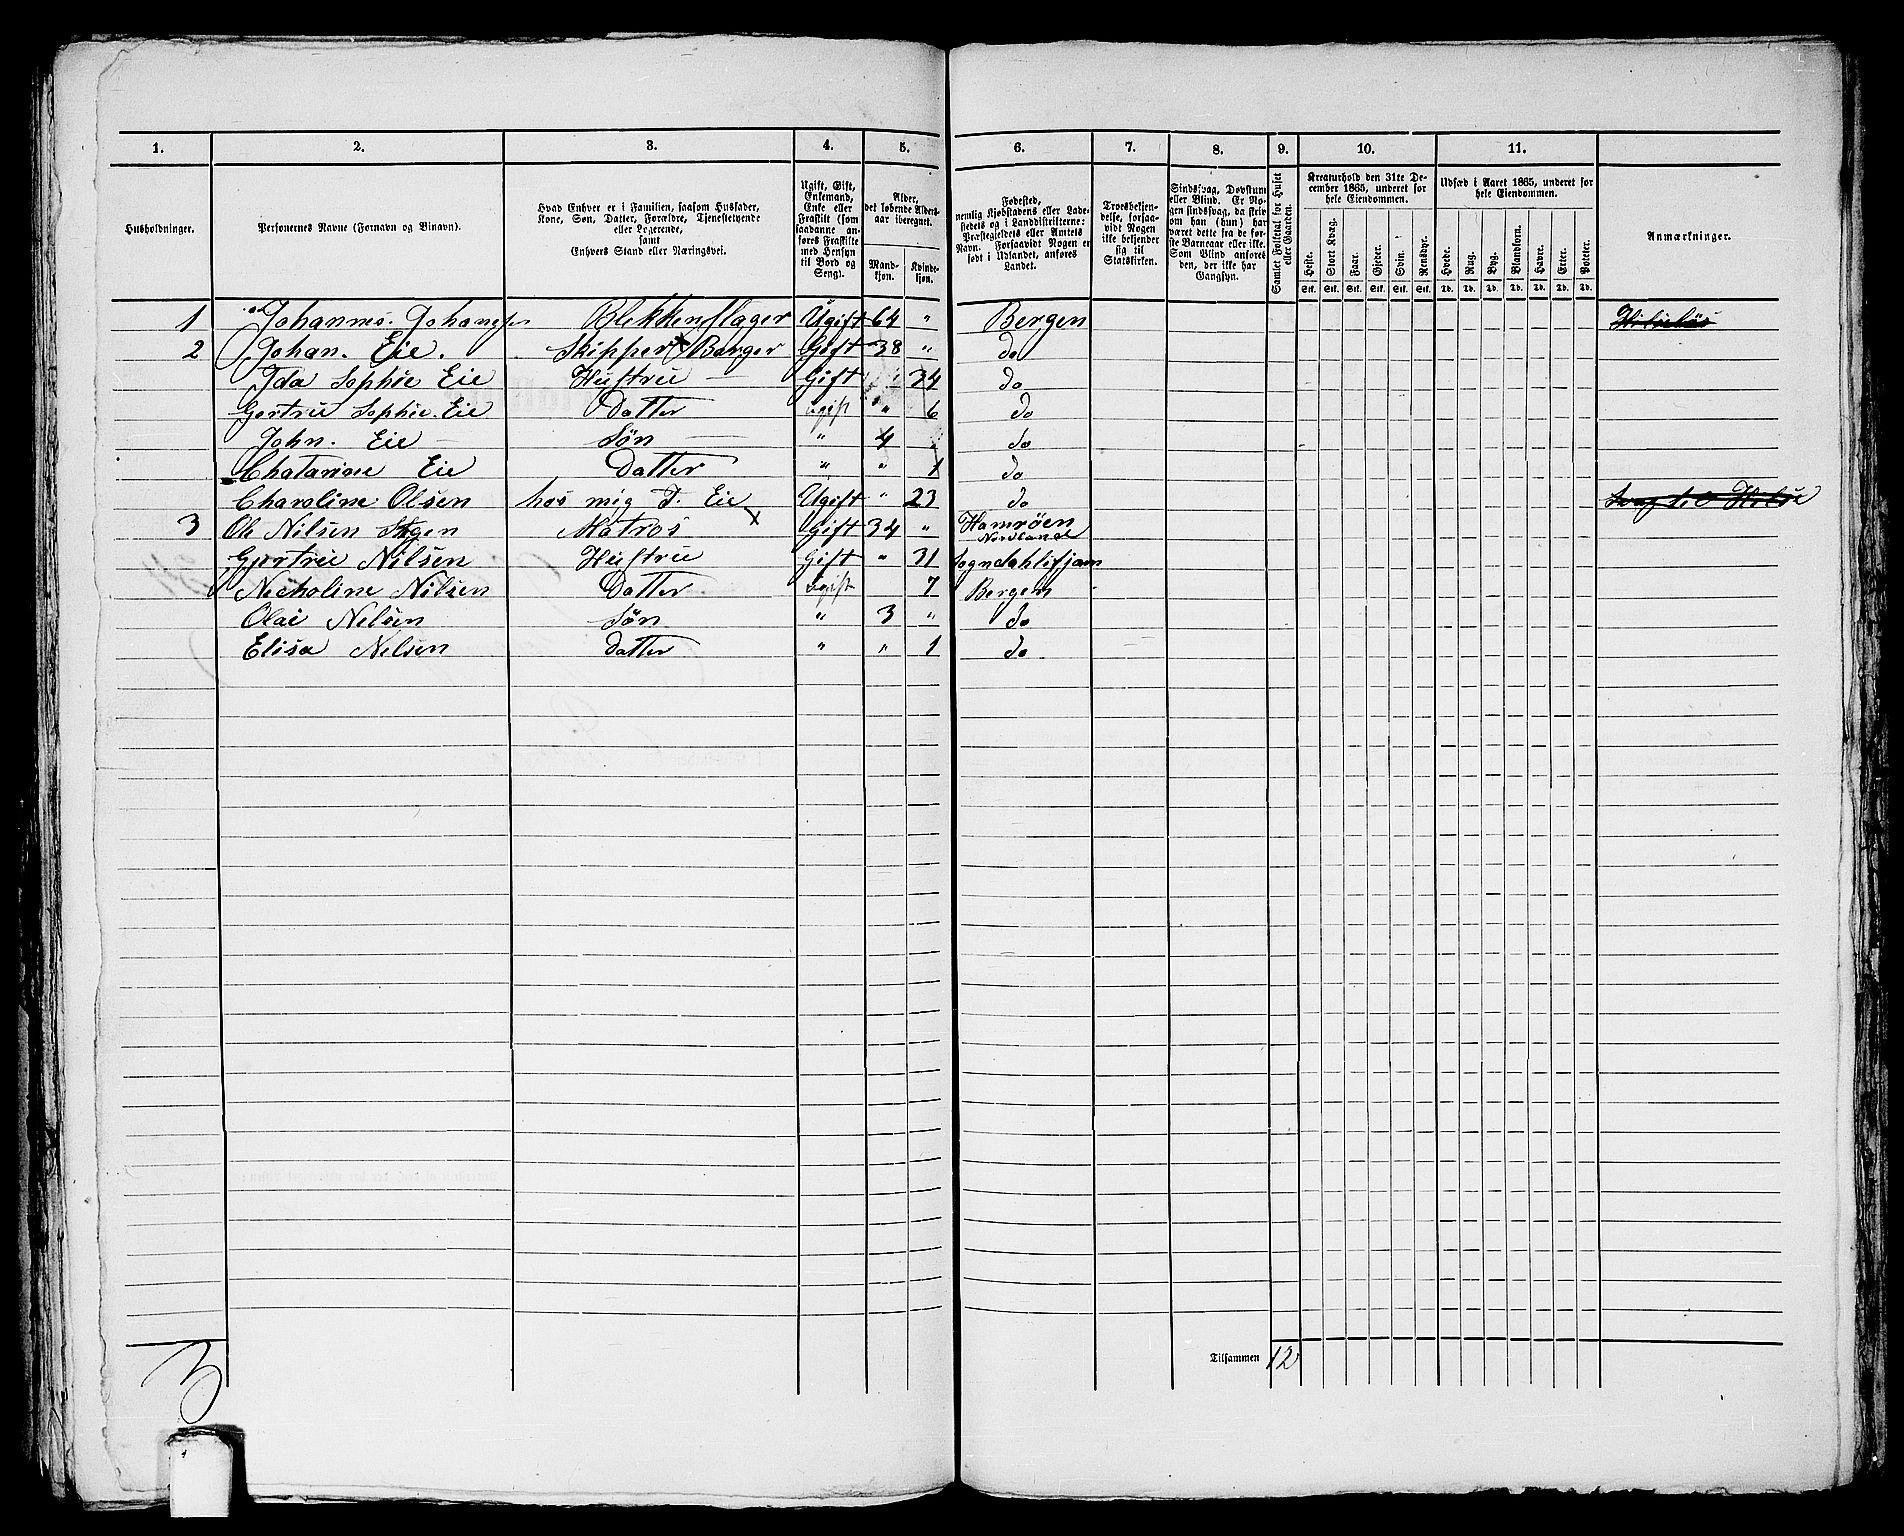 1. 2. 3. 4. 5. 6. 7. 8. 9. 10. 11.
Husholdninger. Personernes Navne (Fornavn og Binavn).
Hvad Enhver er i Familien, saasom Husfader,
Kone, Søn, Datter, Forældre, Tjenestetyende
eller Logerende,
samt
Enhvers Stand eller Næringsvei.
Ugift, Gift,
Enkemand,
Enke eller
Fraskilt (som
saadanne an-
føres Fraskilte
med Hensyn
til Bord og
Seng).
Alder,
det løbende Alders-
aar iberegnet.
Mand-
kjøn.
Kvinde-
kjøn.
Fødested,
nemlig Kjøbstadens eller Lade-
stedets og i Landdistrikterne:
Præstegjeldets eller Amtets
Navn. Forsaavidt Nogen er
født i Udlandet, anføres
Landet.
Troesbekjen-
delse, forsaa-
vidt Nogen
ikke bekjender
sig til
Statskirken.
Sindssvag, Døvstum
eller Blind. Er No-
gen sindssvag, da skri-
ves om han (hun) har
været dette fra de før-
ste Barneaar eller ikke.
Som Blind anføres
den, der ikke har
Gangsyn.
Samlet Folketal for Huset
eller Gaarden.
Kreaturhold den 31te De-
cember 1865, underet for
hele Eiendommen.
Heste. Stort Kvæg. Faar. Gjeder. Svin. Rensdyr.
Stk. Stk. Stk. Stk. Stk. Stk.
Udsæd i Aaret 1865, underet for
hele Eiendommen.
Hvede. Rug. Byg. Blandkorn. Havre. Erter. Poteter.
Td. Td. Td. Td. Td. Td. Td.
Anmærkninger.
1 Johannes Johanes Blekkenslager Ugift 64 " Bergen
2 Johan. Eie. Skipper Borger Gift 38 " do
Ida Sophie Eie Hustru Gift " 34 do
Gertrue Sophie. Eie Datter ugift " 6 do
John. Eie Søn " 4 " do
Chatarine Eie Datter " " 1 do
Charoline Olsen hos mig J. Eie Ugift " 23 do
3 Ole Nilsen Matros Gift 34 " Hamrøen
Nordlande
Gjertrue Nilsen Hustru Gift " 31
Nicholine Nilsen Datter ugift 7 Bergen
Olai Nilsen Søn " 3 " do
Elisa Nilsen Datter " " 1 do
Tilsammen 12
3